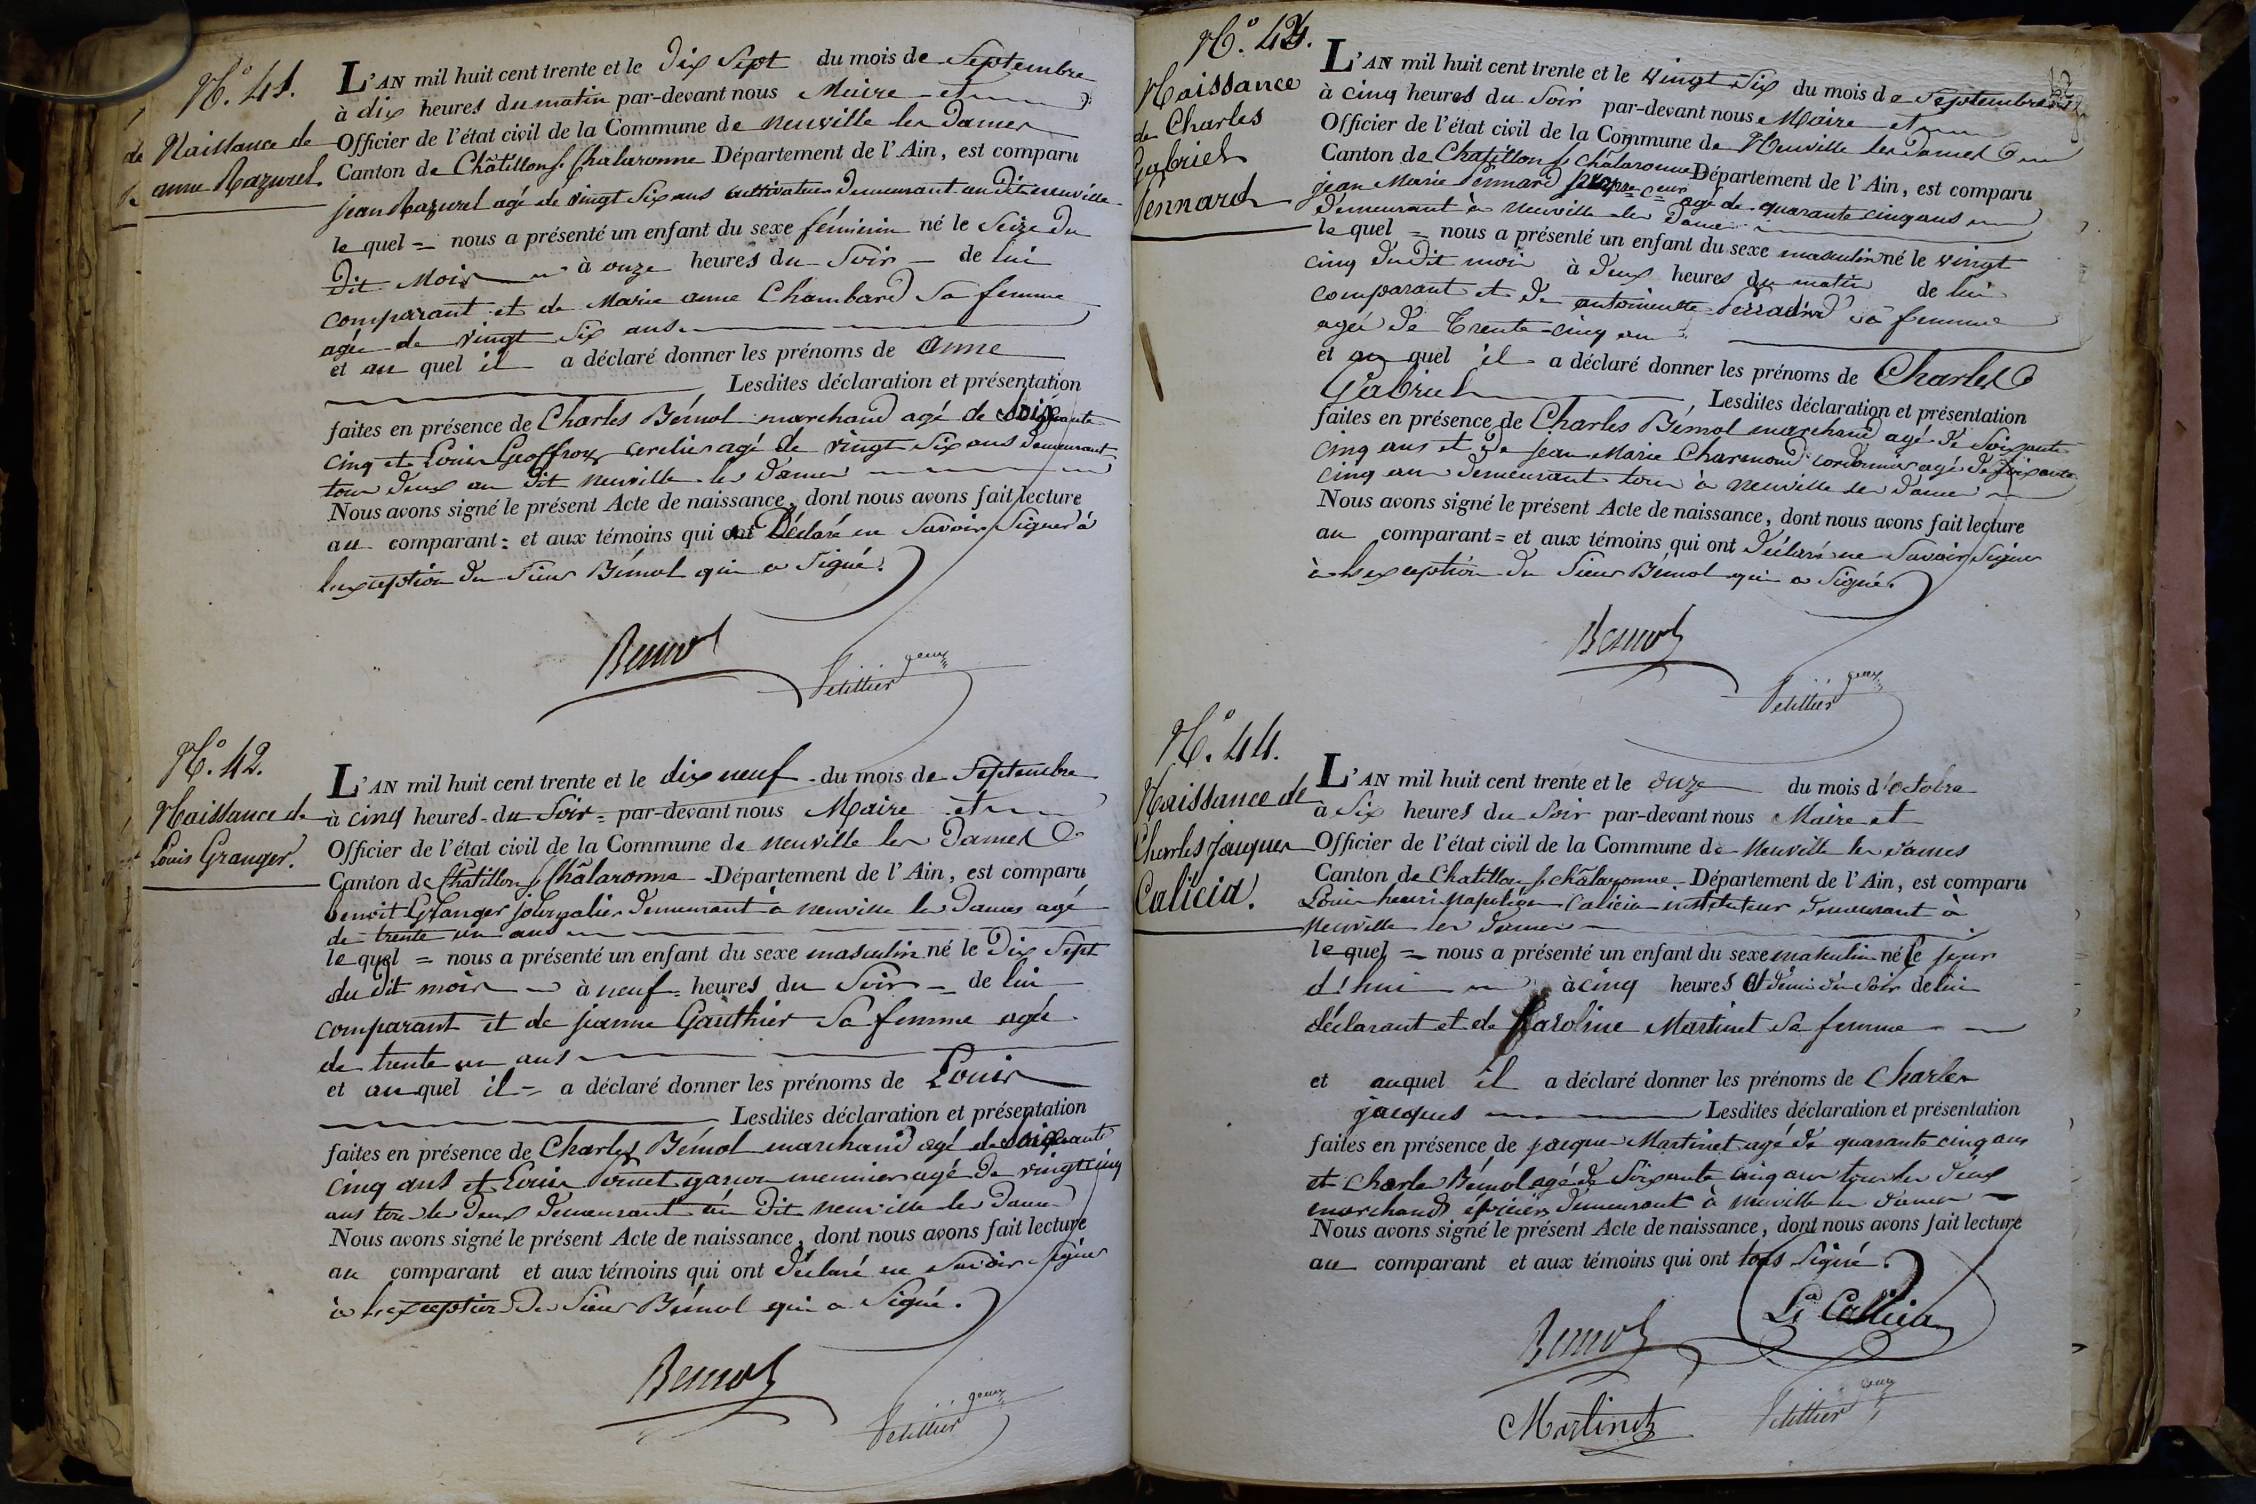 N.° 41.
Naissance de
anne Razurel.
L'AN mil huit cent trente et le dix Sept du mois de Septembre
à dix heures du matin par-devant nous Maire et
Officier de l'état civil de la Commune de neuville les dames
Canton de Châtillon s. Chalaronne Département de l'Ain, est comparu
jean Razurel agé de vingt Six ans cultivateur demeurant au dit neuville
le quel = nous a présenté un enfant du sexe féminin né le Seize du
dit Mois à onze heures du Soir de lui
comparant et de Marie anne Chambard Sa femme
agée de vingt Six ans
et au quel il a déclaré donner les prénoms de anne
Lesdites déclaration et présentation
faites en présence de Charles Bémol marchand agé de Soixante
cinq et Louis Geoffroy agé de vingt Six ans demeurant
tous deux au dit neuville les dames
Nous avons signé le présent Acte de naissance, dont nous avons fait lecture
au comparant = et aux témoins qui ont Déclaré ne Savoir Signer à
lexception du Sieur Bémol qui a Signé.
Bemol
N.° 42.
Naissance de
Louis Granger.
L'AN mil huit cent trente et le dix neuf du mois de Septembre
à cinq heures du Soir = par-devant nous Maire et
Officier de l'état civil de la Commune de neuville les dames
Canton de Châtillon s. Châlaronne Département de l'Ain, est comparu
benoit Granger journalier demeurant à neuville les dames agé
de trente un ans
le quel = nous a présenté un enfant du sexe masculin né le Dix Sept
du dit mois à neuf = heures du Soir de lui
comparant et de jeanne Gauthier Sa femme agée
de trente un ans
et au quel il = a déclaré donner les prénoms de Louis
Lesdites déclaration et présentation
faites en présence de Charles Bémol marchand agé de Soixante
cinq ans et Louis garçon meunier agé de vingt cinq
ans tous les deux demeurant au dit neuville les dames
Nous avons signé le présent Acte de naissance, dont nous avons fait lecture
au comparant et aux témoins qui ont déclaré ne Savoir Signer
à lexception du Sieur Bémol qui a Signé.
Bemol
N.° 43.
Naissance
de Charles
Gabriel
Pennard
L'AN mil huit cent trente et le vingt Six du mois de Septembre
à cinq heures du Soir par-devant nous Maire et
Officier de l'état civil de la Commune de Neuville les dames
Canton de Chatillon s. Châlaronne Département de l'Ain, est comparu
jean Marie Pennard agé de quarante cinq ans
demeurant à neuville les dames
le quel = nous a présenté un enfant du sexe masculin né le vingt
cinq du dit mois à deux heures du matin de lui
comparant et de antoinette sa femme
agée de trente cinq ans
et au quel il a déclaré donner les prénoms de Charles
Gabriel Lesdites déclaration et présentation
faites en présence de Charles Bémol marchand agé de Soixante
cinq ans et de jean Marie Charmond cordonnier agé de Soixante
cinq ans demeurant tous à neuville les dames
Nous avons signé le présent Acte de naissance, dont nous avons fait lecture
au comparant = et aux témoins qui ont déclaré ne Savoir Signer
à lexception du Sieur Bémol qui a Signé.
Bemol
N.° 44.
Naissance de
Charles jacques
Calicia.
L'AN mil huit cent trente et le onze du mois d'octobre
à Six heures du Soir par-devant nous Maire et
Officier de l'état civil de la Commune de Neuville les dames
Canton de Chatillon s. châlaronne Département de l'Ain, est comparu
Louis henri Napoléon Calicia instituteur demeurant à
Neuville les dames
le quel = nous a présenté un enfant du sexe masculin né le jour
d'hui à cinq heures et demie du Soir de lui
déclarant et de Caroline Martinet Sa femme
et auquel il a déclaré donner les prénoms de Charles
jacques Lesdites déclaration et présentation
faites en présence de jacques Martinet agé de quarante cinq ans
et Charles Bémol agé de Soixante cinq ans tous les deux
marchands épiciers demeurant à neuville les dames
Nous avons signé le présent Acte de naissance, dont nous avons fait lecture
au comparant et aux témoins qui ont tous Signé.
Calicia
Bemol
Martinet